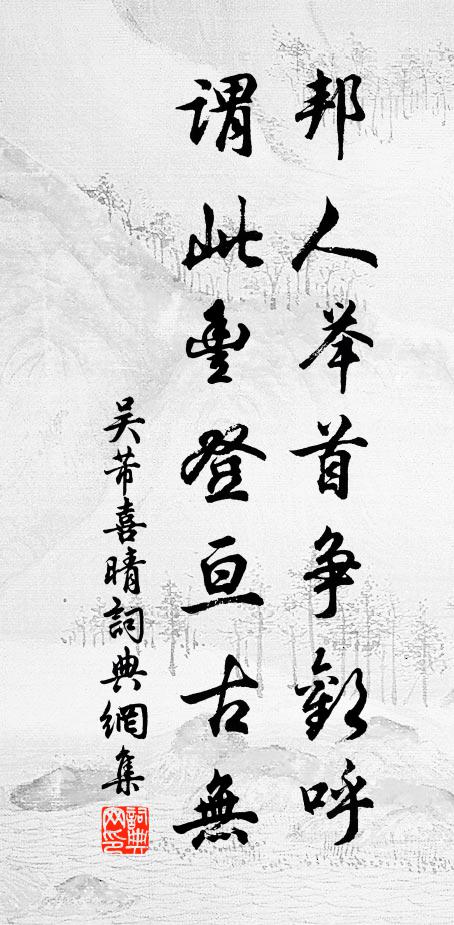 邦人举首争歡呼
謂此豊登亘古無
吴芾喜晴詞典網集
詞典网印